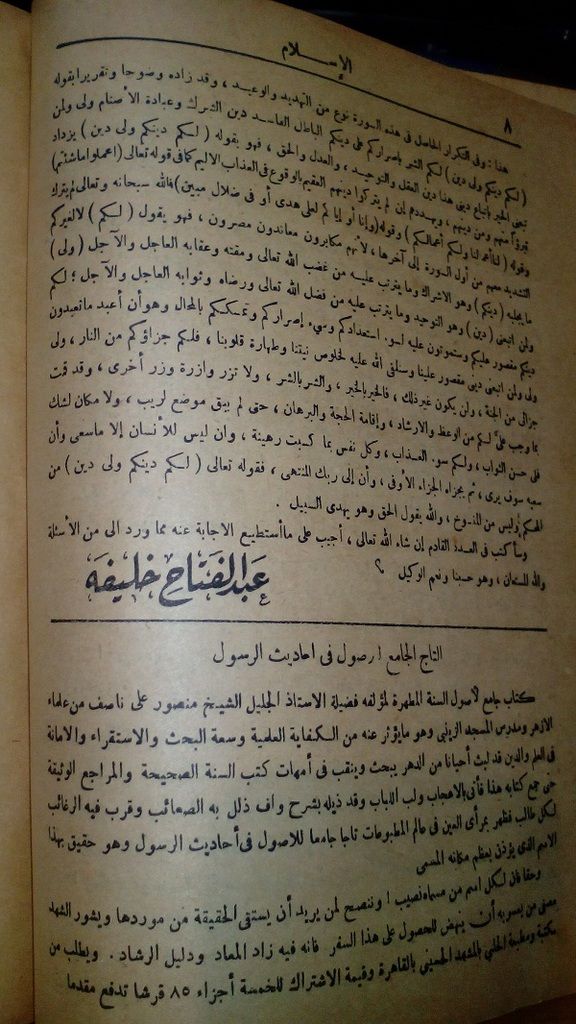 الإسلام
٨
هذا : وفى التكرار الحاصل فى هذه السورة نوع من التهديد والوعيد ، وقد زاده وضوحا وتقريرا بقوله
( لكم دينكم ولى دين ) لكم الشر باصراركم على دينكم الباطل الفاسد دين الشرك وعبادة الأصنام ولى ولمن
تبعنى الخير باتباع دينى هذا دين العقل والتوحيد ، والعدل والحق ، فهو بقوله ( لكم دينكم ولى دين ) يزداد
تبرؤا منهم ومن دينهم ، ويهددهم إن لم يتركوا دينهم العقيم بالوقوع فى العذاب الاليم كما فى قوله تعالى (اعملوا ماشئتم)
وقوله ( لنا أعمالنا ولكم أعمالكم ) وقوله (وإنا أو إياكم لعلى هدى أو فى ضلال مبين) فالله سبحانه وتعالى لم يترك
التشديد معهم من أول السورة إلى آخرها ، لأنهم مكابرون معاندون مصرون ، فهو يقول ( لكم ) لا لغيركم
ما يجلبه (دينكم) وهو الاشراك وما يترتب عليه من غضب الله تعالى ومقته وعقابه العاجل والآجل ( ولى )
ولمن اتبعنى (دين) وهو التوحيد وما يترتب عليه من فضل الله تعالى ورضاه وثوابه العاجل والآجل ؛ لكم
دينكم مقصور عليكم وستموتون عليه لسوء استعدادكم وسيء إصراركم وتمسككم بالمحال وهو أن أعبد ما تعبدون
ولى ولمن اتبعنى دينى مقصور علينا وسنلقى الله عليه لخلوص نيتنا وطهارة قلوبنا ، فلكم جزاؤكم من النار ، ولى
جزائى من الجنة ، ولن يكون غير ذلك ، فالخير بالخير ، والشر بالشر ، ولا تزر وازرة وزر أخرى ، وقد قمت
بما وجب على لكم من الوعظ والارشاد ، وإقامة الحجة والبرهان ، حتى لم يبق موضع لريب ، ولا مكان لشك
فلى حسن الثواب ، ولكم سوء العذاب ، وكل نفس بما كسبت رهينة ، وان ليس للأنسان إلا ماسعى وأن
سعيه سوف يرى ، ثم يجزاه الجزاء الأوفى ، وأن إلى ربك المنتهى ، فقوله تعالى ( لكم دينكم ولى دين ) من
المحكم وليس من المنسوخ ، والله يقول الحق وهو يهدى السبيل .
وسأكتب فى العدد القادم إن شاء الله تعالى ، أجيب على ماأستطيع الاجابة عنه مما ورد الى من الأسئلة
والله المستعان ، وهو حسبنا ونعم الوكيل ؟
عبد الفتاح خليفه
التاج الجامع للأصول فى احاديث الرسول
كتاب جامع لأصول السنة المطهرة لمؤلفه فضيلة الاستاذ الجليل الشيخ منصور على ناصف من علماء
الازهر ومدرس المسجد الزينبى وهو مايؤثر عنه من الكفاية العلمية وسعة البحث والاستقراء والامانة
فى العلم والدين قد لبث أحيانا من الدهر يبحث وينقب فى أمهات كتب السنة الصحيحة والمراجع الوثيقة
حتى جمع كتابه هذا فأتى بالاعجاب ولب اللباب وقد ذيله بشرح واف ذلل به الصعائب وقرب فيه الرغائب
لكل طالب فظهر بمرأى العين فى عالم المطبوعات تاجا جامعا للاصول فى أحاديث الرسول وهو حقيق بهذا
الاسم الذى يؤذن بعظم مكانه المسمى
وحقا فان لكل اسم من مسماه نصيب ! وننصح لمن يريد أن يستقى الحقيقة من موردها ويشور الشهد
مصفى من يعسوبه أن ينهض للحصول على هذا السفر فانه فيه زاد المعاد ودليل الرشاد . ويطلب من
مكتبة ومطبعة الحلبى بالمشهد الحسينى بالقاهرة وقيمة الاشتراك للخمسة أجزاء ٨٥ قرشا تدفع مقدما